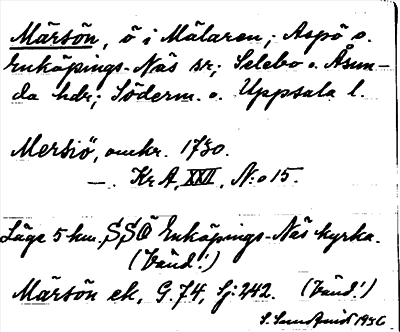 Märsön, ö i Mälaren; Aspö o.
Enköpings-Näs sr; Selebo o. Åsun-
da hdr; Söderm. o. Uppsala l.
Mersiö, omkr. 1730.
—. Kr A, XXII, N:o 15.
Läge 5 km. SSÖ Enköpings-Näs kyrka.
(Vänd!)
Märsön ek, G. 74, Sj: 242. (Vänd!)
S. 1936